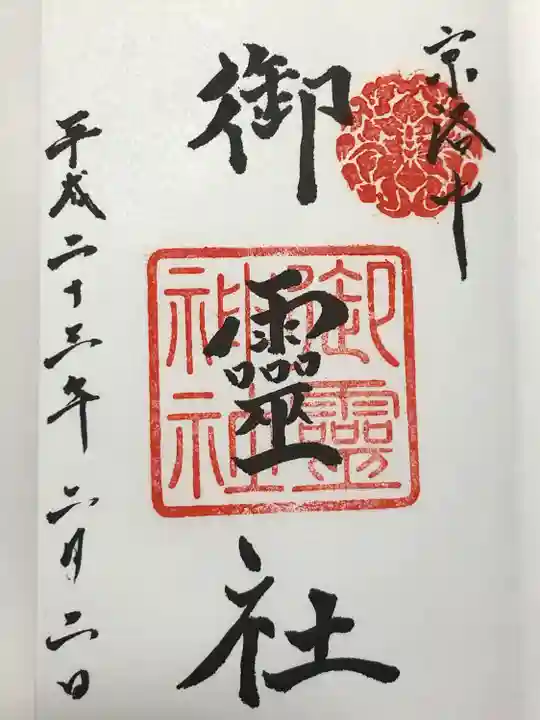 京洛
御靈社
御靈
神社
平成二十三年二月二日